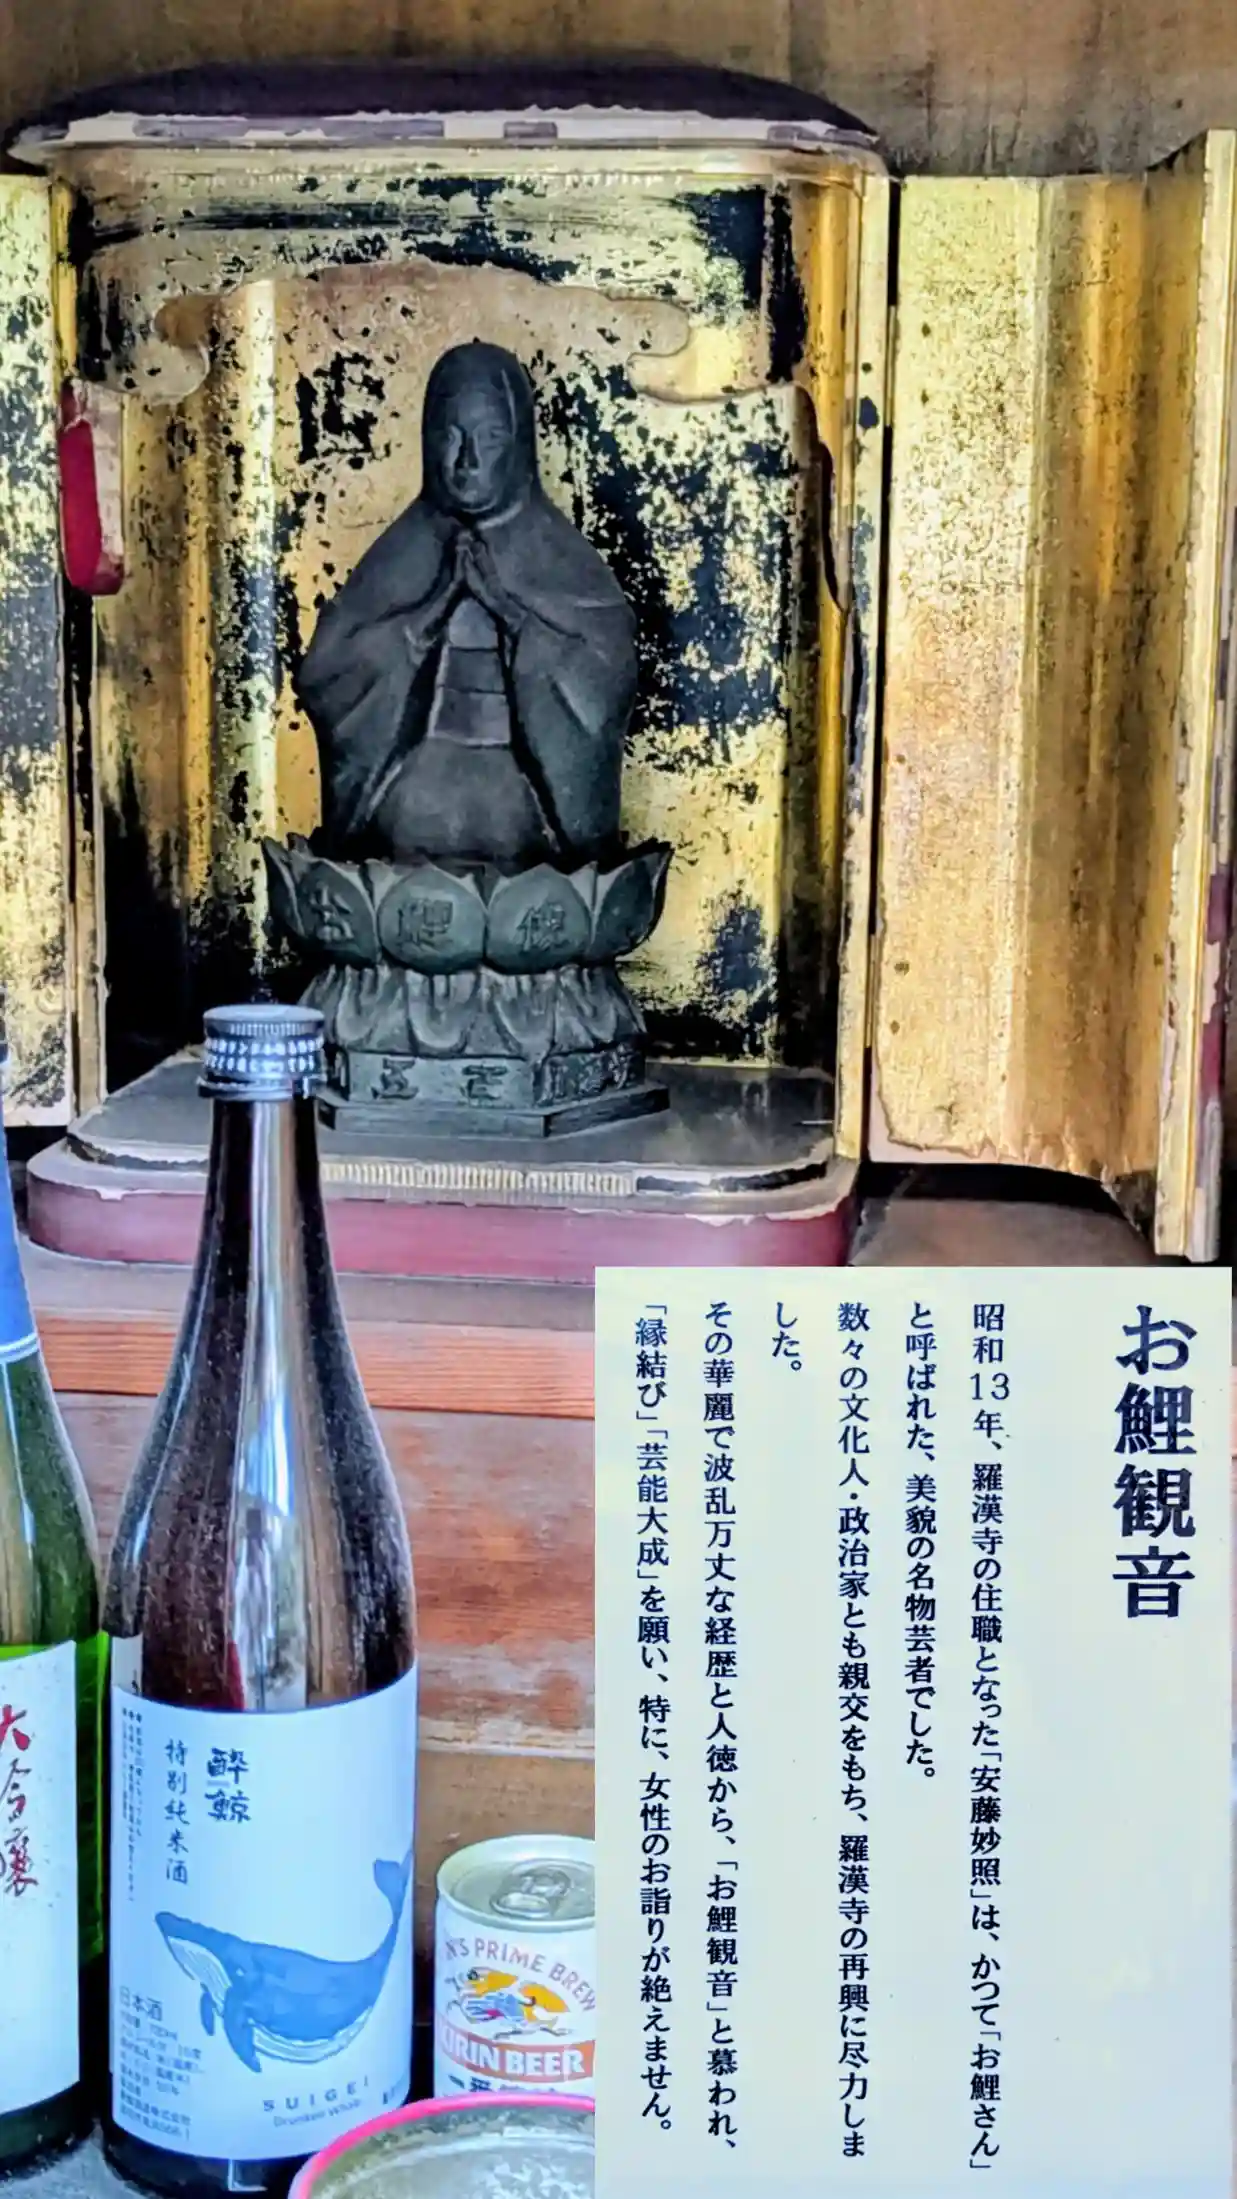 お鯉観音
昭和13年、羅漢寺の住職となった「安藤妙照」は、かつて「お鯉さん」
と呼ばれた、美貌の名物芸者でした。
数々の文化人・政治家とも親交をもち、羅漢寺の再興に尽力しま
した。
その華麗で波乱万丈な経歴と人徳から、「お鯉観音」と慕われ、
「縁結び」「芸能大成」を願い、特に、女性のお詣りが絶えません。
酔鯨
特別純米酒
日本酒
SUIGEI
Drunken Whale
大吟醸
PRIME BREW
KIRIN BEER